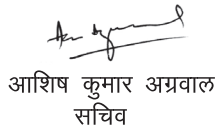 आशिष कुमार अग्रवाल
सचिव